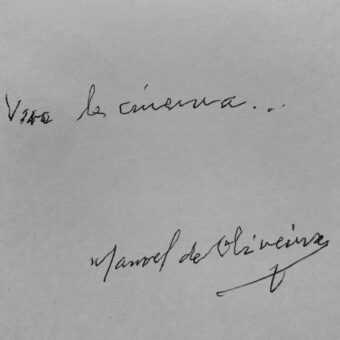 Viva le cinema...
Manoel de Oliveira